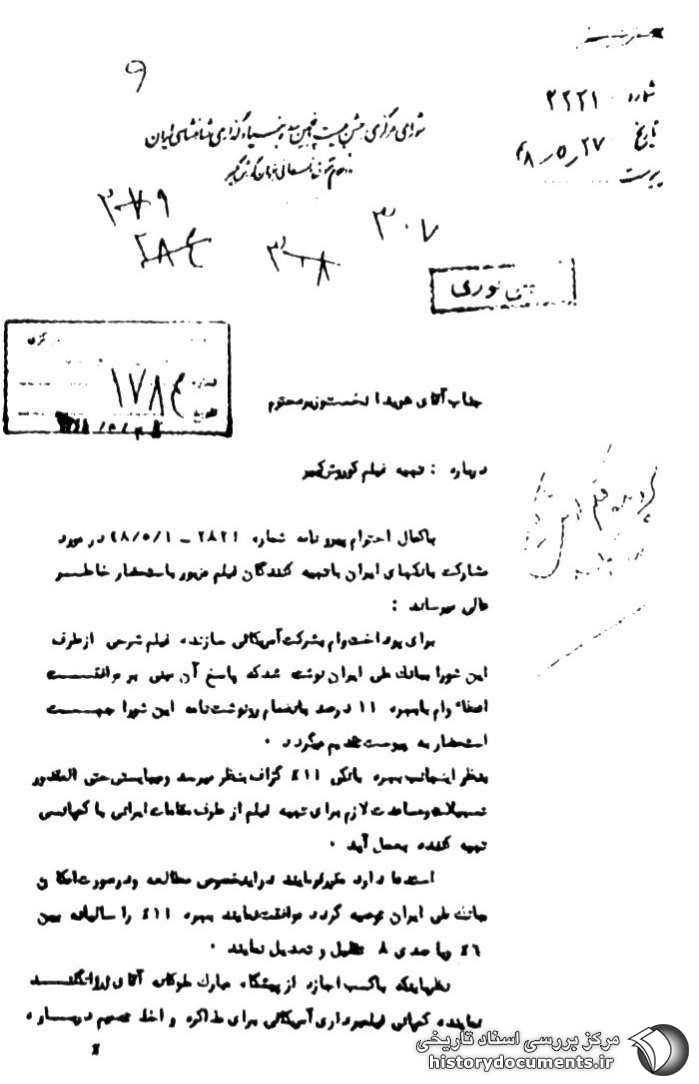 شماره ۲۲۲۱
تاریخ ۴۸٫۵٫۲۷
پیوست
۹
شورای مرکزی جشن دو هزار و پانصدمین سده بنیادگذاری شاهنشاهی ایران
۲۷۹
۲۸۴
۳۰۸
۳۰۷
فوری
۱۷۸۴
جناب آقای هویدا نخست وزیر محترم
درباره : تهیه فیلم کوروش کبیر
باکمال احترام پیرو نامه شماره ۲۸۲۱ – ۴۸/۵/۱ در مورد
مشارکت بانکهای ایران باتهیه کنندگان فیلم مزبور باستحضار خاطر
عالی میرساند :
برای پرداخت وام بشرکت آمریکائی سازنده فیلم شرحی ازطرف
این شورا ببانک ملی ایران نوشته شد که پاسخ آن مبنی بر موافقت
اعطاء وام بابهره ۱۱ درصد بانضمام رونوشت نامه این شورا جهت
استحضار به پیوست تقدیم میگردد .
بنظر اینجانب بهره بانکی ۱۱٪ گزاف بنظر میرسد ومیبایستی حتی المقدور
تسهیلات ومساعدت لازم برای تهیه فیلم از طرف مقامات ایرانی با کمپانی
تهیه کننده بعمل آید .
استدعا دارد مقرر فرمایند دراینخصوص مطالعه ودرصورت امکان
ببانک ملی ایران توصیه گردد موافقت نمایند بهره ۱۱٪ را سالیانه بین
۶٪ ویا حدی ۸ تقلیل و تعدیل نمایند .
نظرباینکه باکسب اجازه از پیشگاه مبارک ملوکانه آقای
نماینده کمپانی فیلمبرداری آمریکائی برای مذاکره و اخذ تصمیم درباره
٪
مرکز بررسی اسناد تاریخی
historydocuments.ir